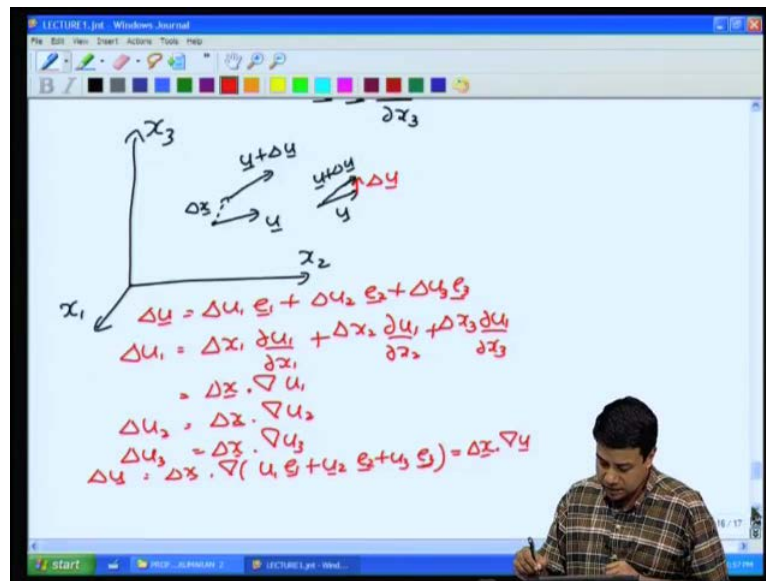 LECTURE1.jnt - Windows Journal
File Edit View Insert Actions Tools Help
B I
∂x₃
x₃
u̲+Δu̲
Δx̲
u̲
u̲+Δu̲
Δu̲
u̲
x₂
x₁
Δu̲ = Δu₁ e̲₁ + Δu₂ e̲₂ + Δu₃ e̲₃
Δu₁ = Δx₁ ∂u₁/∂x₁ + Δx₂ ∂u₁/∂x₂ + Δx₃ ∂u₁/∂x₃
= Δx̲ . ∇u₁
Δu₂ = Δx̲ . ∇u₂
Δu₃ = Δx̲ . ∇u₃
Δu̲ = Δx̲ . ∇(u₁ e̲₁ + u₂ e̲₂ + u₃ e̲₃) = Δx̲ . ∇u̲
16 / 17
start
LECTURE1.jnt - Wind...